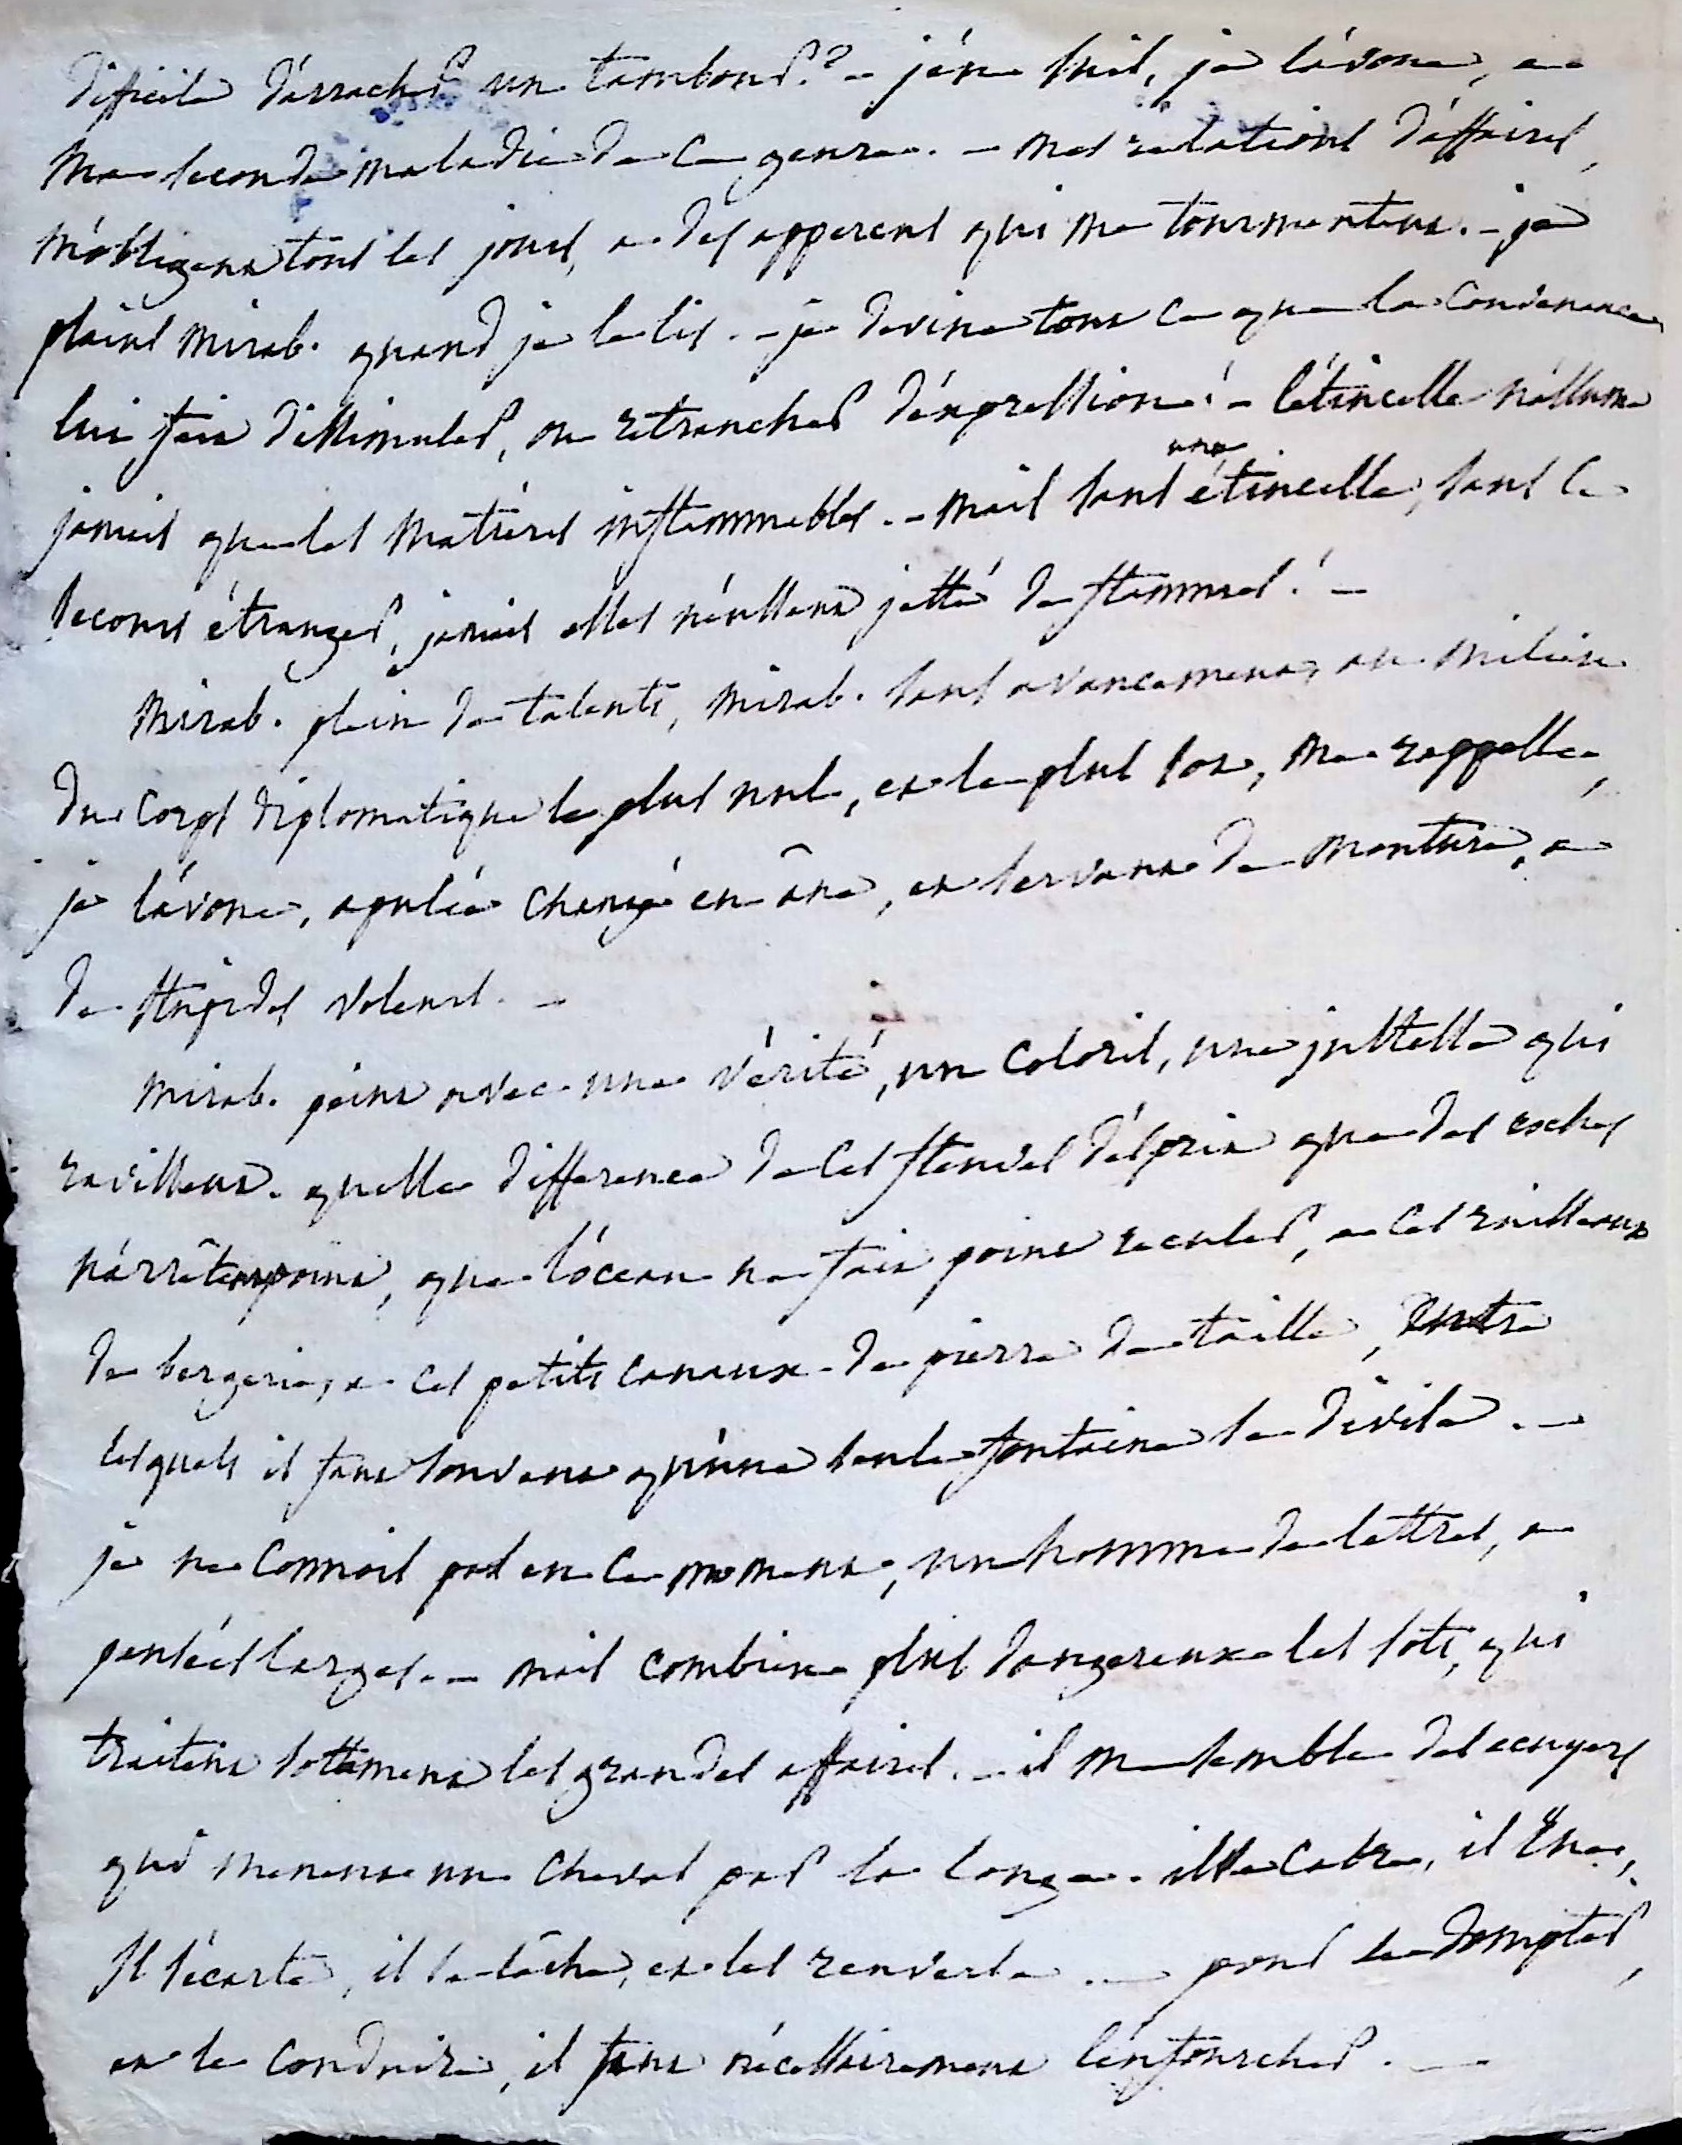 difficile d'arracher un tambour? - j'en suis, je l'avoue, a
ma seconde maladie de ce genre. - mes relations d'affaires,
m'obligent tous les jours, a des apperçus qui me tourmentent. - je
plains Mirab. quand je le lis. - je devine tout ce que la convenance
lui fait dissimuler, ou retrancher d'expressions! - l'étincelle n'allume
jamais que les matières inflammables. - mais sans une étincelle, sans ce
secours étranger, jamais elles n'eussent jetté de flammes! -
Mirab. plein de talents, Mirab. sans avancement, au milieu
du corps diplomatique le plus nul, et le plus sot, me rappelle,
je l'avoue, apulée changé en âne, et servant de monture, a
de stupides voleurs. -
Mirab. peint avec une vérité, un coloris, une justesse qui
ravissent. quelle difference de ces fleuves d'esprit que des rochers
n'arrêtent point, que l'océan ne fait point reculer, a ces ruisseaux
de bergerie, a ces petits canaux de pierre de taille, entre
lesquels il faut souvent qu'une seule fontaine se divise. -
je ne connois pas en ce moment, un homme de lettres, a
pensées larges. - mais combien plus dangereux les sots, qui
traitent sottement les grandes affaires. - il me semble des ecuyers
qui menent un cheval par la longe. il se cabre, il rue,
Il s'écarte, il se lâche, et les renverse. - pour le dompter,
et le conduire, il faut nécessairement l'enfourcher. -